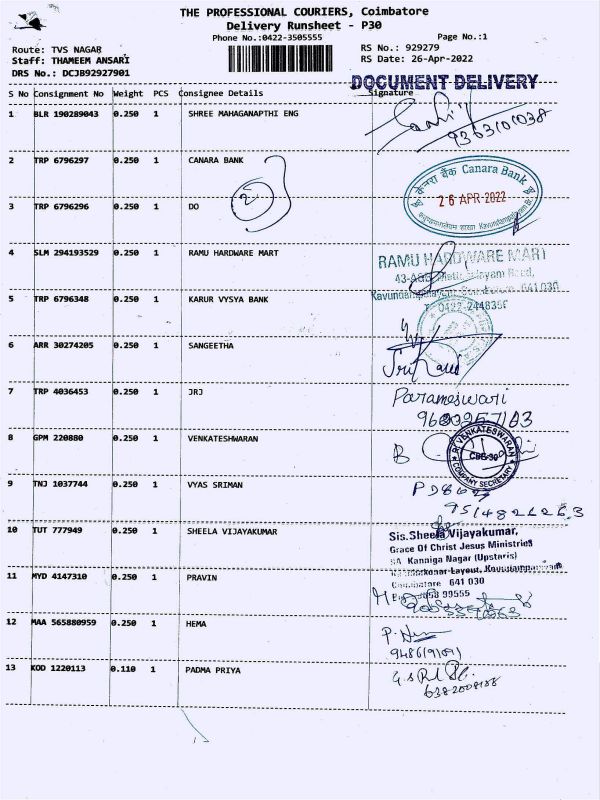 THE PROFESSIONAL COURIERS, Coimbatore
Delivery Runsheet - P30
Phone No.:0422-3505555
Page No.:1
Route: TVS NAGAR
Staff: THAMEEM ANSARI
DRS No.: DCJB92927901
RS No.: 929279
RS Date: 26-Apr-2022
DOCUMENT DELIVERY
S No Consignment No Weight PCS Consignee Details Signature
1 BLR 190289043 0.250 1 SHREE MAHAGANAPTHI ENG
9363101038
2 TRP 6796297 0.250 1 CANARA BANK
केनरा बैंक Canara Bank
26 APR 2022
3 TRP 6796296 0.250 1 DO
2
4 SLM 294193529 0.250 1 RAMU HARDWARE MART
RAMU HARDWARE MART
5 TRP 6796348 0.250 1 KARUR VYSYA BANK
6 ARR 30274205 0.250 1 SANGEETHA
7 TRP 4036453 0.250 1 JRJ
Parameswari
8 GPM 220880 0.250 1 VENKATESHWARAN
B
R VENKATESWARAN
CBE-30
COMPANY SECRETARY
9 TNJ 1037744 0.250 1 VYAS SRIMAN
10 TUT 777949 0.250 1 SHEELA VIJAYAKUMAR
Sis.Sheela Vijayakumar,
Grace Of Christ Jesus Ministries
Kanniga Nagar (Upstaris)
Layout,
641 030
11 MYD 4147310 0.250 1 PRAVIN
12 MAA 565880959 0.250 1 HEMA
13 KOD 1220113 0.110 1 PADMA PRIYA